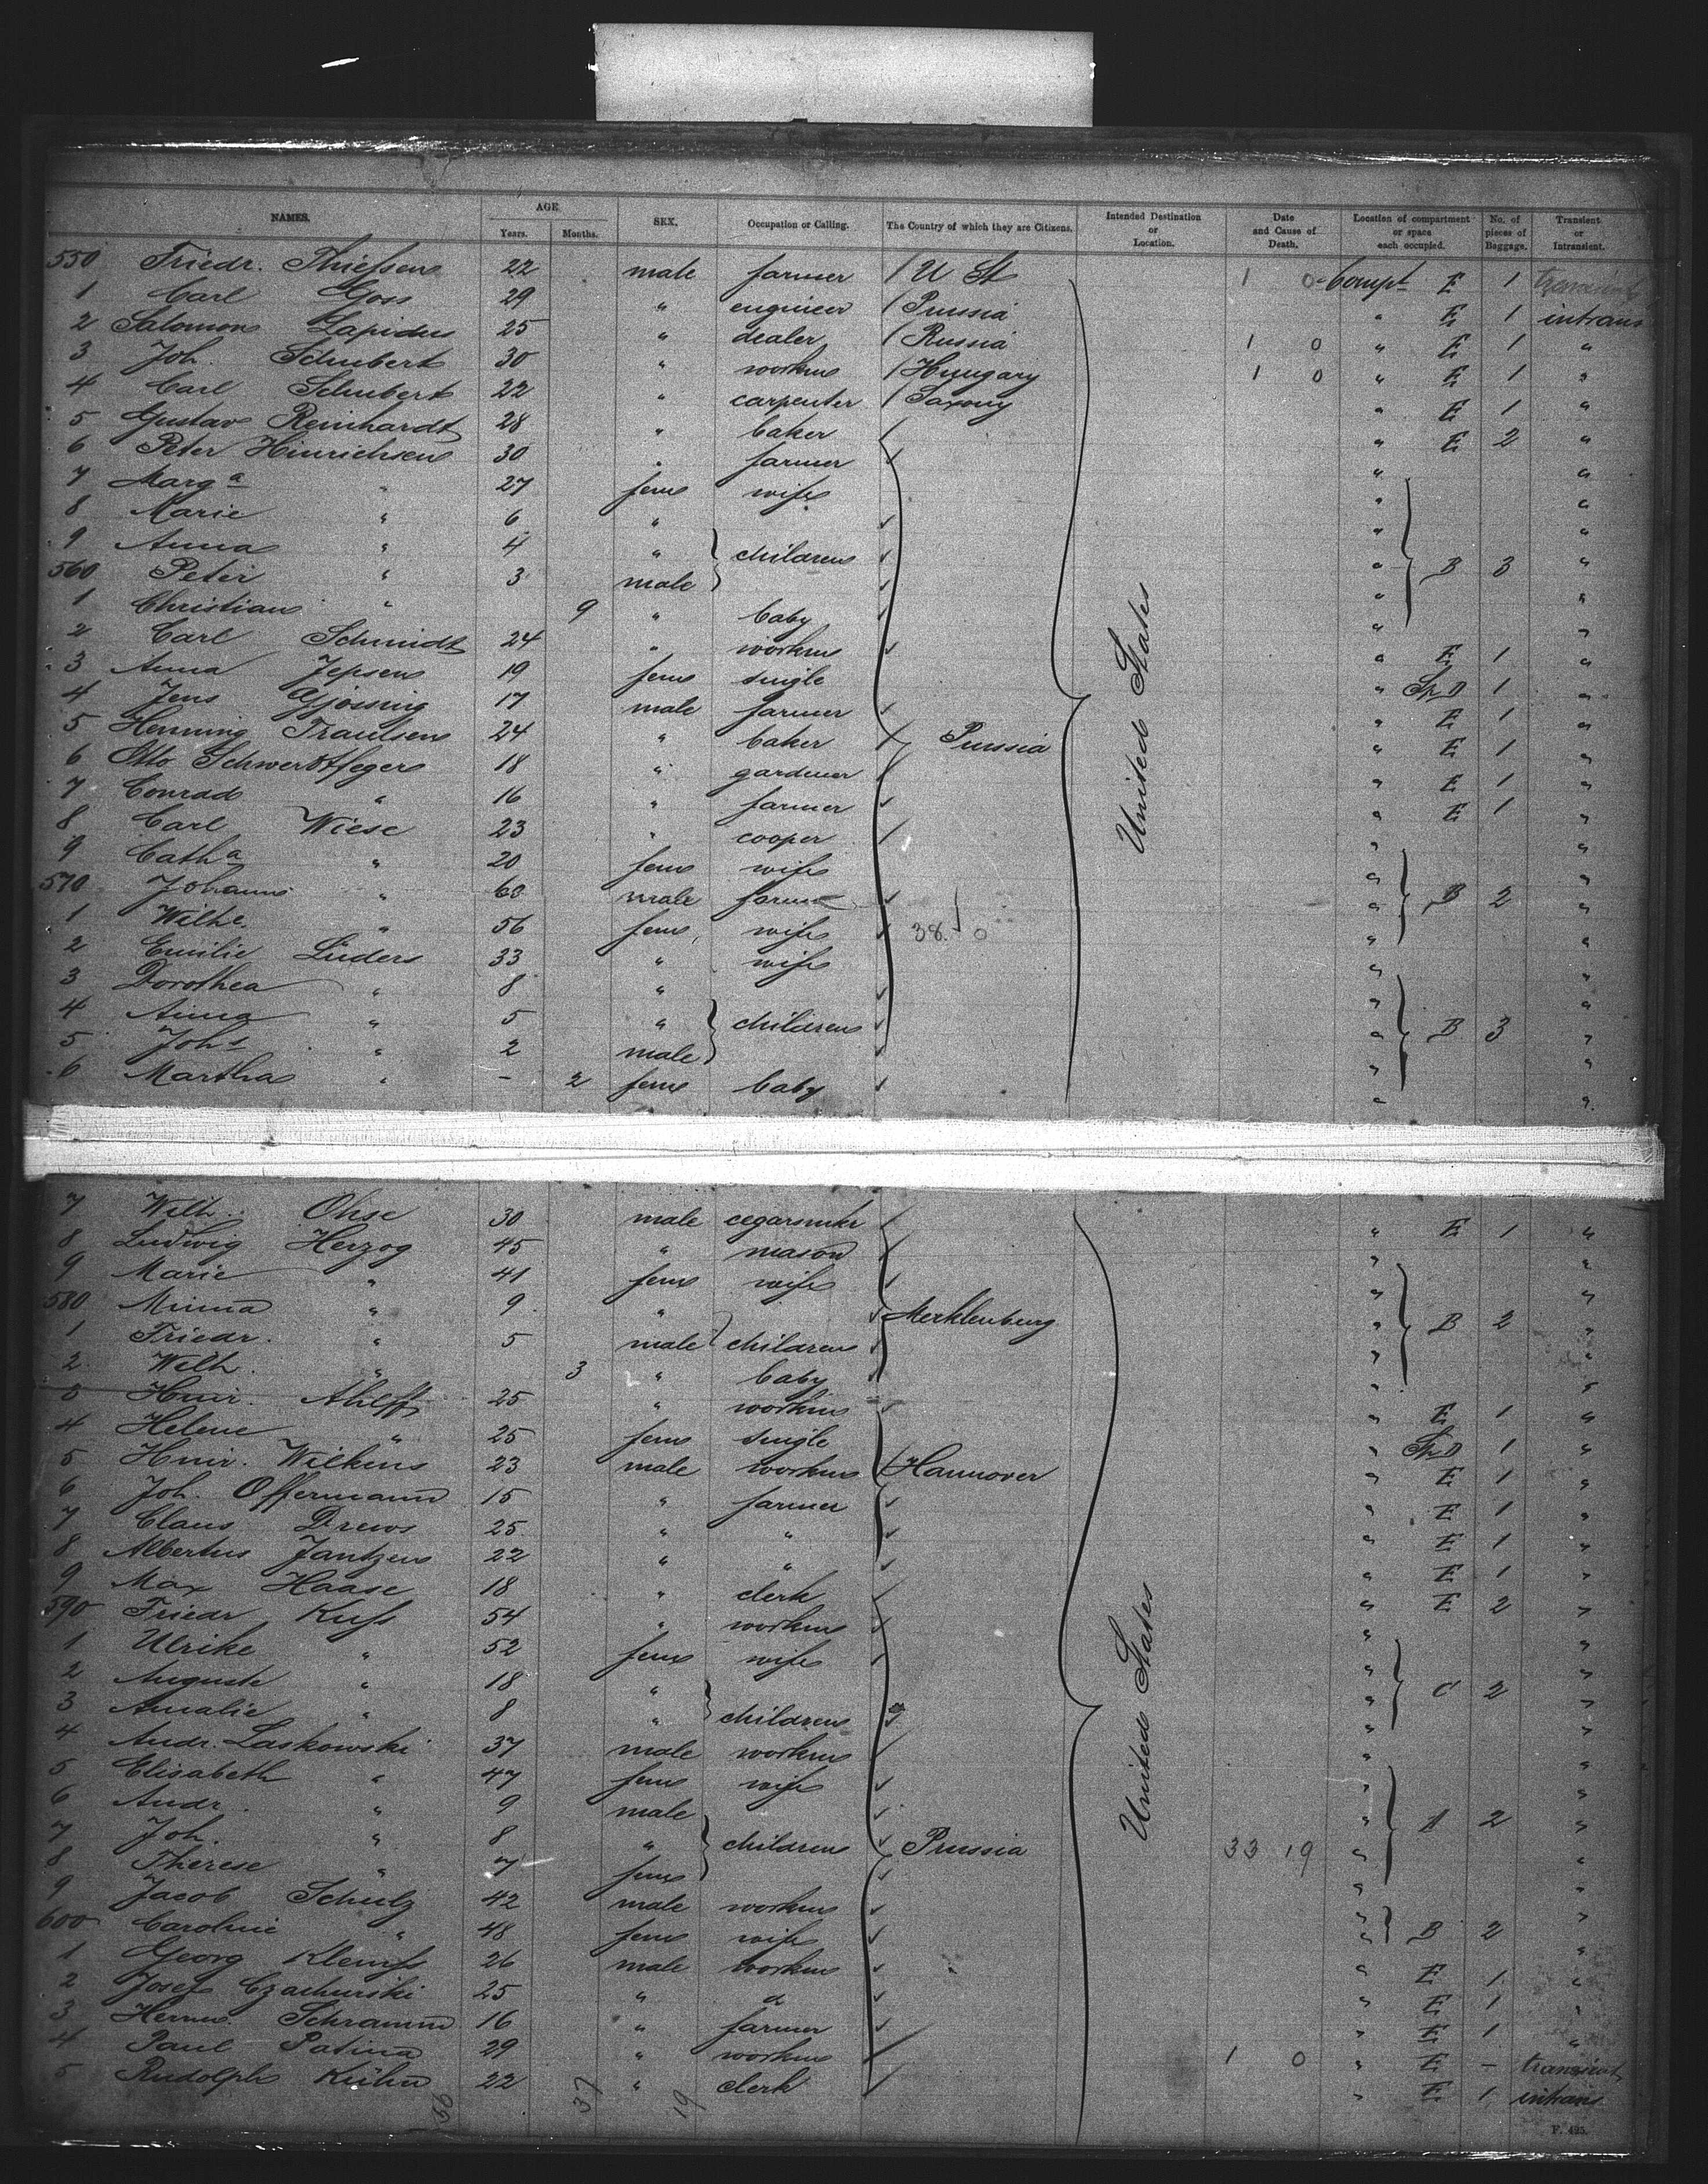 NAMES. AGE. Years. Months. SEX. Occupation or Calling. The Country of which they are Citizens. Intended Destination or Location. Date and Cause of Death. Location of compartment or space each occupied. No. of pieces of Baggage. Transient or Intransient.
550 Friedr. Thießen 22 male farmer / U St 1 0 Compt E 1 transient
1 Carl Goss 29 " engineer / Prussia " E 1 intrans
2 Salomon Lapidus 25 " dealer / Russia 1 0 " E 1 "
3 Joh. Schubert 30 " workm / Hungary 1 0 " E 1 "
4 Carl Schubert 22 " carpenter / Saxony " E 1 "
5 Gustav Reinhardt 28 " baker " E 2 "
6 Peter Hinrichsen 30 " farmer " "
7 Marga " 27 fem wife " "
8 Marie " 6 " " "
9 Anna " 4 " children " "
560 Peter " 3 male " B 3 "
1 Christian " 9 " baby " "
2 Carl Schmidt 24 " workm " E 1 "
3 Anna Jepsen 19 fem single " Sp D 1 "
4 Jens Gjossing 17 male farmer " E 1 "
5 Henning Traulsen 24 " baker Prussia " E 1 "
6 Otto Schwerdtfeger 18 " gardener " E 1 "
7 Conrad " 16 " farmer " E 1 "
8 Carl Wiese 23 " cooper " "
9 Catha " 20 fem wife " "
570 Johanns " 60 male farmer " B 2 "
1 Wilhe. " 56 fem wife 38. 0 " "
2 Emilie Lüders 33 " wife " "
3 Dorothea " 8 " " "
4 Anna " 5 " children " B 3 "
5 Johs " 2 male " "
6 Martha " - 2 fem baby " "
United States
7 Wilh. Ohse 30 male cegarsmkr " E 1 "
8 Ludwig Herzog 45 " mason " "
9 Marie " 41 fem wife " "
580 Minna " 9 " Merklenburg " B 2 "
1 Friedr. " 5 male children " "
2 Wilh. " 3 " baby " "
3 Hinr. Ahlff 25 " workm " E 1 "
4 Helene " 25 fem single " Sp D 1 "
5 Hinr. Wilkens 23 male workm Hannover " E 1 "
6 Joh. Offermann 15 " farmer " E 1 "
7 Claus Drews 25 " " " E 1 "
8 Albertus Jantzen 22 " " " E 1 "
9 Max Haase 18 " clerk " E 2 "
590 Friedr. Kuß 54 " workm " "
1 Ulrike " 52 fem wife " "
2 Auguste " 18 " " C 2 "
3 Amalie " 8 " children " "
4 Andr. Laskowski 37 male workm " "
5 Elisabeth " 47 fem wife " "
6 Andr. " 9 male " A 2 "
7 Joh. " 8 " children Prussia 33 19 " "
8 Therese " 7 fem " "
9 Jacob Schulz 42 male workm " "
600 Caroline " 48 fem wife " B 2 "
1 Georg 26 male workm " E 1 "
2 Josef Czachurski 25 " d " E 1 "
3 Herm. Schramm 16 " farmer " E 1 "
4 Paul Patina 29 " workm 1 0 " E - transient
5 Rudolph Kühn 22 " clerk " E 1 intrans
United States
56 37 19
F. 425.